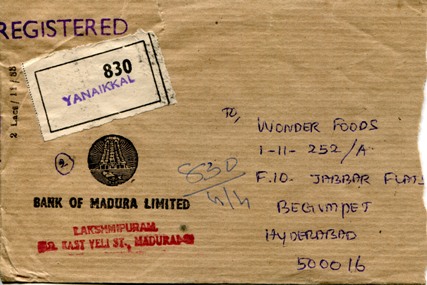 REGISTERED
830
YANAIKKAL
2 Lacs/11/85
2
BANK OF MADURA LIMITED
LAKSHMIPURAM
EAST VELI ST., MADURAI
830
4/4
To,
WONDER FOODS
1-11-252/A
F.10- JABBAR FLATS
BEGUMPET
HYDERABAD
500016